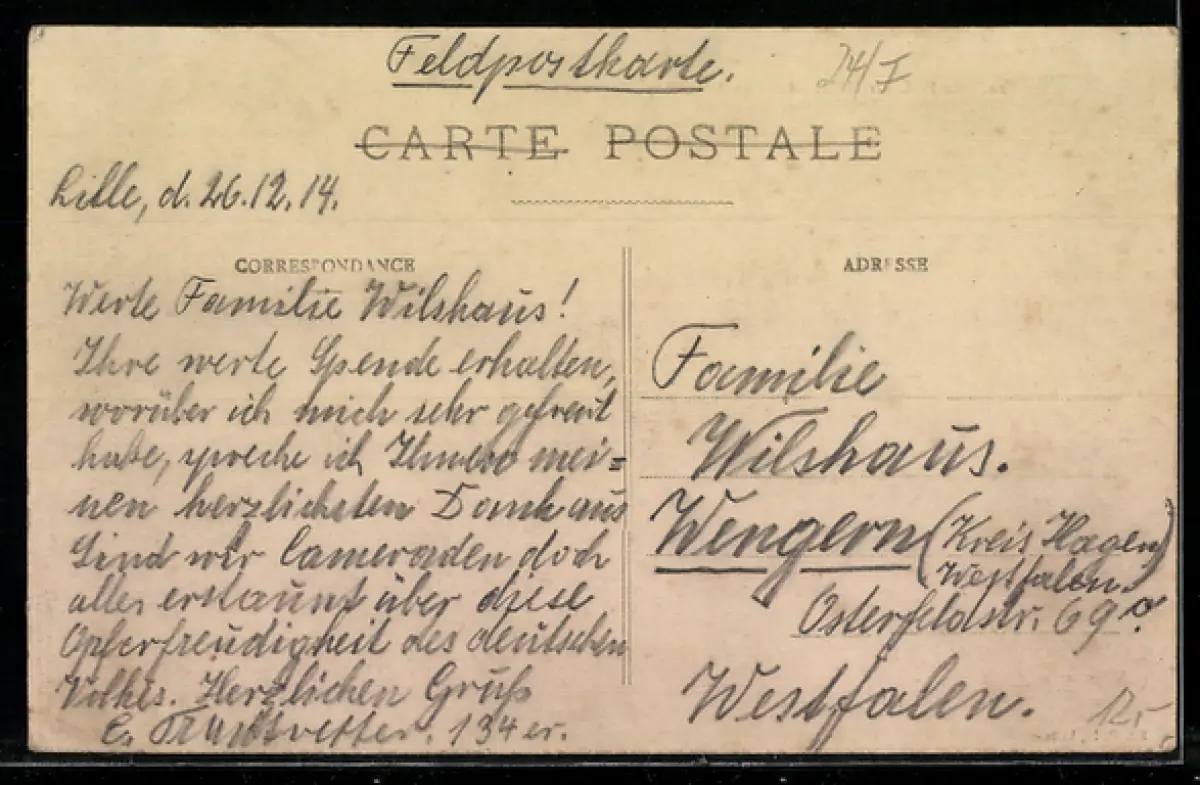 Feldpostkarte. 24/I
CARTE POSTALE
Lille, d. 26.12.14.
CORRESPONDANCE
Werte Familie Wilshaus!
Ihre werte Spende erhalten,
worüber ich mich sehr gefreut
habe, spreche ich Ihnen mei=
nen herzlichsten Dank aus
Sind wir Cameraden doch
alle erstaunt über diese
Opferfreudigheit des deutschen
Volkes. Herzlichen Gruß
E. 134er.
ADRESSE
Familie
Wilshaus.
Wengern (Kreis Hagen)
Westfalen.
Osterfeldstr. 69a.
Westfalen.
12,-